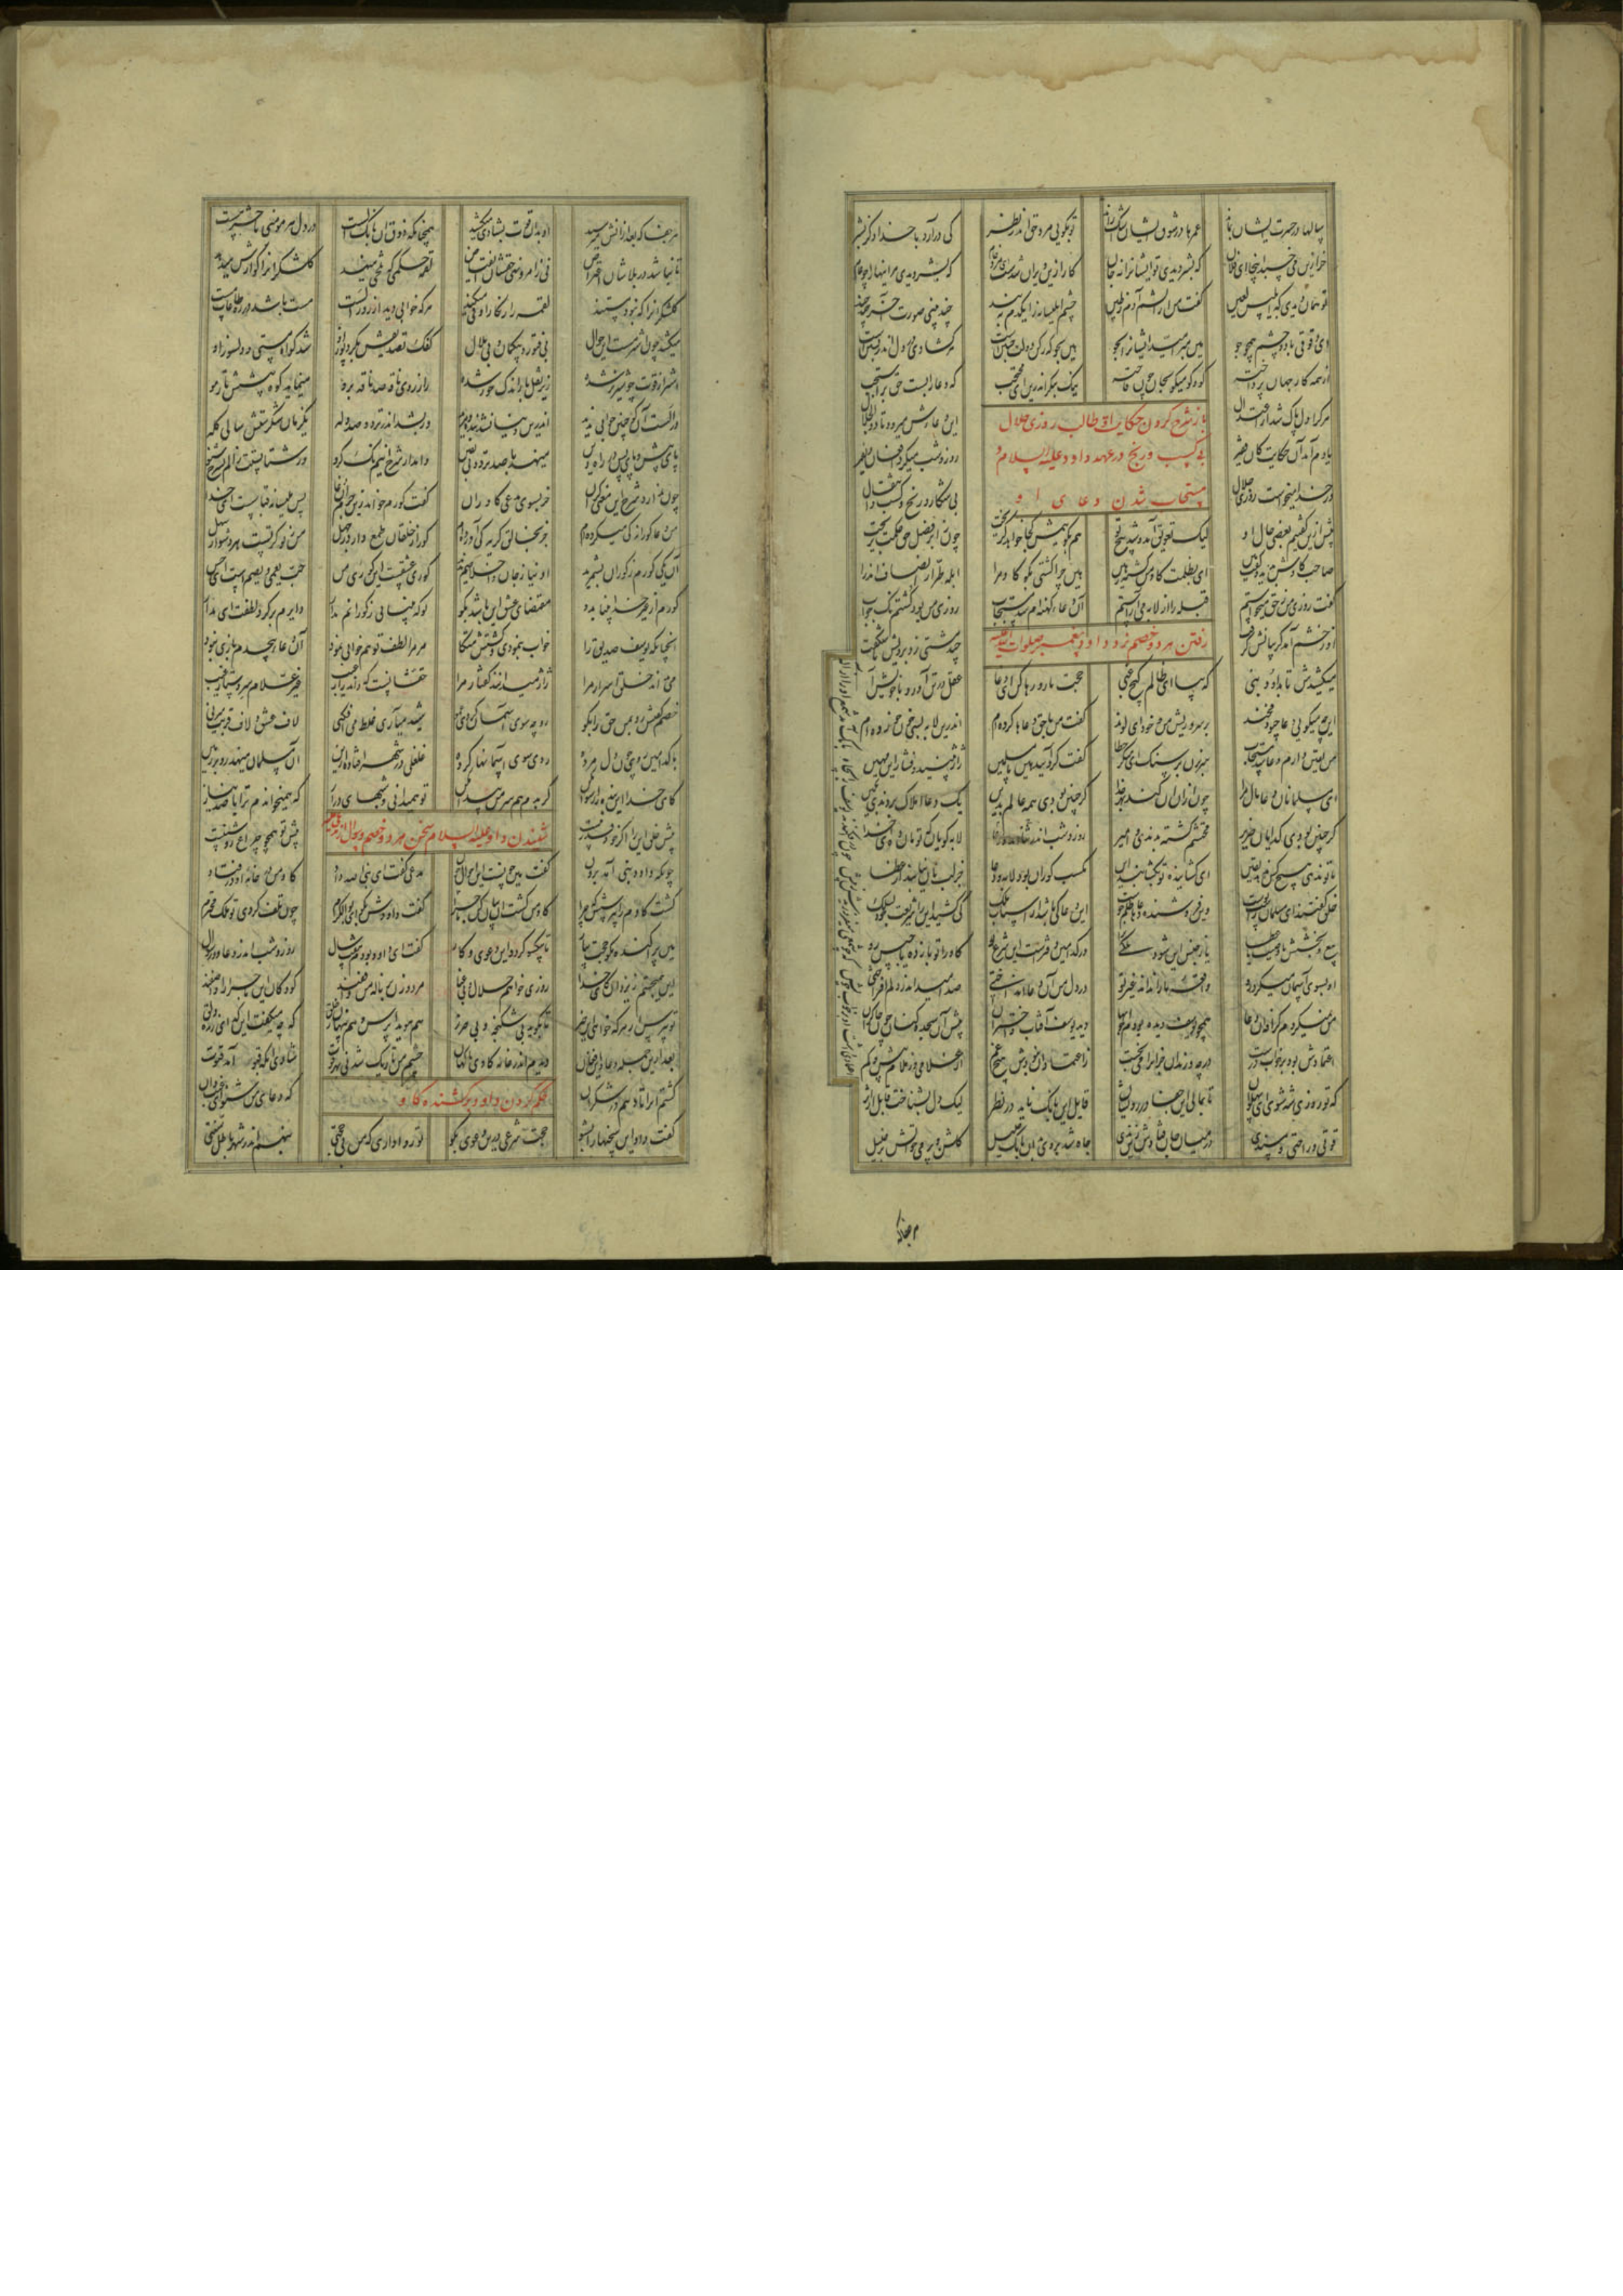 سالها در حسرت ایشان بماند عمرها در شوق ایشان اشک راند تو بگویی مرد حق اندر نظر کی درآرد با خدا ذکر بشر
خر ازین می خسبد اینجا ای فلان که بشر دیدی تو ایشانرا نه جان کار ازین ویران شدست ای مرد خام که بشر دیدی مر اینها را چو عام
تو همان دیدی که ابلیس لعین گفت من از آتشم آدم ز طین چشم ابلیسانه را یکدم ببند چند بینی صورت آخر چند چند
ای دقوقی با دو چشم همچو جو هین مبر امید ایشانرا بجو هین بجو که رکن دولت جستن است هر گشادی در دل اندر بستن است
از همه کار جهان پرداخته کو و کو میگو بجان چون فاخته نیک بنگر اندرین ای محتجب که دعا را بست حق بر استجب
هر کرا دل پاک شد از اعتدال این دعااش میرود تا ذوالجلال
باز شرح کردن حکایت آن طالب روزی حلال
بی کسب و رنج در عهد داود علیه السلام و
مستجاب شدن دعای او
یادم آمد آن حکایت کان فقیر روز و شب میکرد افغان و نفیر
وز خدا میخواست روزی حلال بی شکار و رنج و کسب و انتقال
پیش ازین گفتیم بعضی حال او لیک تعویق آمد و شد پنج تو هم بگوییمش کجا خواهد گریخت چون ز ابر فضل حق حکمت بریخت
صاحب گاوش بدید و گفت هین ای بظلمت گاو من گشته رهین هین چرا کشتی بگو گاو مرا ابله طرار انصاف اندرآ
گفت روزی من ز حق میخواستم قبله را از لابه می آراستم آن دعاء کهنه ام شد مستجاب روزی من بود کشتم نک جواب
او ز خشم آمد گریبانش گرفت چند مشتی زد برویش ناشکفت
رفتن هر دو خصم نزد داود پیغمبر صلوات الله علیه
میکشیدش تا بداود نبی که بیا ای ظالم گیج غبی حجت بارد رها کن ای دغا عقل در تن آور و با خویش آ
این چه میگویی دعا چبود مخند بر سر و ریش من و خود ای لوند گفت من با حق دعاها کرده ام اندرین لابه بسی خون خورده ام
من یقین دارم دعا شد مستجاب سر بزن بر سنگ ای منکر خطاب گفت گرد آیید هین یا مسلمین ژاژ بینید و فشار این مهین
ای مسلمانان دعا مال مرا چون از آن او کند بهر خدا گر چنین بودی همه عالم بدین یک دعا املاک بردندی بکین
گر چنین بودی گدایان ضریر محتشم گشته بدندی و امیر روز و شب اندر دعااند و ثنا لابه گویان که تو مان ده ای خدا
تا تو ندهی هیچ کس ندهد یقین ای گشاینده تو بگشا بند این مکسب کوران بود لابه و دعا جز لب نانی نیابند از عطا
خلق گفتند این مسلمان راست گوست وین فروشنده دعاها ظلم جوست این دعا کی باشد از اسباب ملک کی کشید این را شریعت خود بسلک
بیع و بخشش یا وصیت یا عطا یا ز جنس این شود ملکی ترا در کدامین دفترست این شرع نو گاو را تو باز ده یا حبس رو
او بسوی آسمان میکرد رو واقعه ما را نداند غیر تو در دل من آن دعا انداختی صد امید اندر دلم افراختی
من نمیکردم گزافه آن دعا همچو یوسف دیده بودم خوابها دید یوسف آفتاب و اختران پیش او سجده کنان چون چاکران
اعتمادش بود بر خواب درست در چه و زندان جز آنرا می نجست ز اعتماد آن نبودش هیچ غم از غلامی وز ملام و بیش و کم
اعتمادی داشت او بر خواب خویش که چو شمعی میفروزیدش ز پیش چون در افکندند یوسف را بچاه بانگ آمد سمع او را از اله
که تو روزی شه شوی ای پهلوان تا بمالی این جفا در رویشان قایل این بانگ ناید در نظر لیک دل بشناخت قایل از اثر
قوتی و راحتی و مسندی در میان جان فتادش زان ندی چاه شد بر وی بدان بانگ جلیل گلشن و بزمی چو آتش بر خلیل
هر جفا
هر جفا که بعد ازانش میرسید او بدان قوت بشادی میکشید همچنانکه ذوق آن بانگ الست در دل هر مومنی تا حشر هست
تا نباشد در بلاشان اعتراض نی ز امر و نهی حقشان انقباض لقمه حکمی که تلخی مینهد گلشکر آنرا گوارش میدهد
گلشکر آنرا که نبود مستند لقمه را ز انکار او قی میکند هر که خوابی دید از روز الست مست باشد در ره طاعات مست
میکشد چون اشتر مست این جوال بی فتور و بی گمان و بی ملال کفک تصدیقش بگرد پوز او شد گواه مستی و دلسوز او
اشتر از قوت چو شیر نر شده زیر ثقل بار اندک خور شده ز آرزوی ناقه صد فاقه برو مینماید کوه پیشش تار مو
در الست آنکو چنین خوابی ندید اندرین دنیا نشد بنده و مرید ور بشد اندر تردد صد دله یکزمان شکرستش و سالی گله
پای پیش و پای پس در راه دین مینهد با صد تردد بی یقین وامدار شرح اینم نک گرو ور شتابستت ز الم نشرح شنو
چون ندارد شرح این معنی کران خر بسوی مدعی گاو ران گفت کورم خواند زین جرم آن دغا پس بلیسانه قیاسست ای خدا
من دعا کورانه کی میکرده ام جز بخالق کدیه کی آورده ام کور از خلقان طمع دارد ز جهل من ز تو کز تست هر دشوار سهل
آن یکی کورم ز کوران بشمرید او نیاز جان و اخلاصم ندید کوری عشقست این کوری من حب یعمی و یصم است ای حسن
کورم از غیر خدا بینا بدو مقتضای عشق این باشد بگو تو که بینایی ز کورانم مدار دایرم برگرد لطفت ای مدار
آنچنانکه یوسف صدیق را خواب بنمودی و گشتش متکا مر مرا لطف تو هم خوابی نمود آن دعای بیحدم بازی نبود
می نداند خلق اسرار مرا ژاژ میدانند گفتار مرا حقشانست و که داند راز غیب غیر علام سر و ستار عیب
خصم گفتش رو بمن حق را بگو رو چه سوی آسمان کردی عمو شید می آری غلط می افکنی لاف عشق و لاف قربت میزنی
با کدامین روی چون دل مرده روی سوی آسمانها کرده غلغلی در شهر افتاده ازین آن مسلمان مینهد رو بر زمین
کای خدا این بنده را رسوا مکن گر بدم هم سر من پیدا مکن تو همیدانی و شبهای دراز که همیخواندم ترا با صد نیاز
پیش خلق این را اگر خود قدر نیست پیش تو همچون چراغ روشنیست
شنیدن داود علیه السلام سخن هر دو خصم و سوال از
چونکه داود نبی آمد برون گفت هین چونست این احوال چون مدعی گفت ای نبی الله داد گاو من در خانه او در فتاد
کشت گاوم را بپرسش که چرا گاو من کشت او بیان کن ماجرا گفت داودش بگو ای بوالکرم چون تلف کردی تو ملک محترم
هین پراکنده مگو حجت بیار تا بیکسو گردد این دعوی و کار گفت ای داود بودم هفت سال روز و شب اندر دعا و در سوال
این همیجستم ز یزدان کای خدا روزی خواهم حلال و بی عنا مرد و زن بر ناله من واقفند کودکان این ماجرا را واصفند
تو بپرس از هر که خواهی این خبر تا بگوید بی شکنجه و بی ضرر هم هویدا پرس و هم پنهان ز خلق که چه میگفت این گدای ژنده دلق
بعد ازین جمله دعا و این فغان دیدم اندر خانه گاوی ناگهان چشم من تاریک شد نی بهر لوت شادی آنکه قبول آمد قنوت
کشتم آنرا تا دهم در شکر آن که دعای من شنود آن غیب دان
حکم کردن داود بر کشنده گاو
گفت داود این سخنها را بشو حجت شرعی درین دعوی بگو تو روا داری که من بی حجتی بنهم اندر شهر باطل سنتی